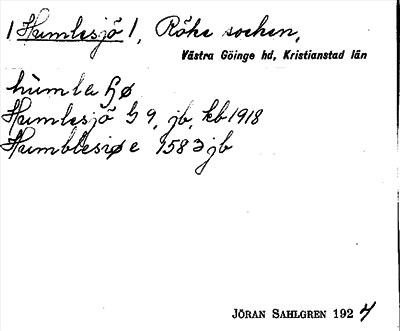 / Humlesjö /, Röke socken,
Västra Göinge hd, Kristianstad län
hùmla
Humlesjö 9, jb, kb 1918
Humblesiøe 1583 jb
JÖRAN SAHLGREN 1924